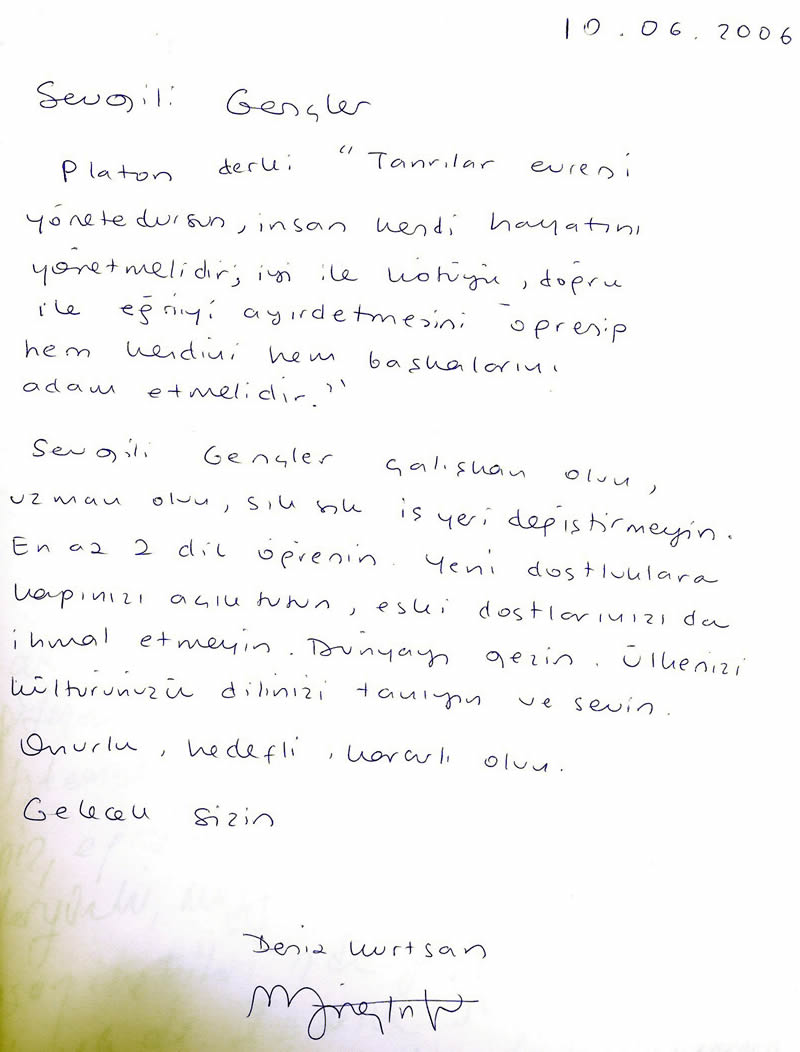 10.06.2006
Sevgili Gençler
Platon derki "Tanrılar evreni
yönetedursun, insan kendi hayatını
yönetmelidir; iyi ile kötüyü, doğru
ile eğriyi ayırdetmesini öğrenip
hem kendini hem başkalarını
adam etmelidir."
Sevgili Gençler çalışkan olun,
uzman olun, sık sık iş yeri değiştirmeyin.
En az 2 dil öğrenin. Yeni dostluklara
kapınızı açık tutun, eski dostlarınızı da
ihmal etmeyin. Dünyayı gezin. Ülkenizi
kültürünüzü dilinizi tanıyın ve sevin.
Onurlu, hedefli, kararlı olun.
Gelecek sizin
Deniz Kurtsan